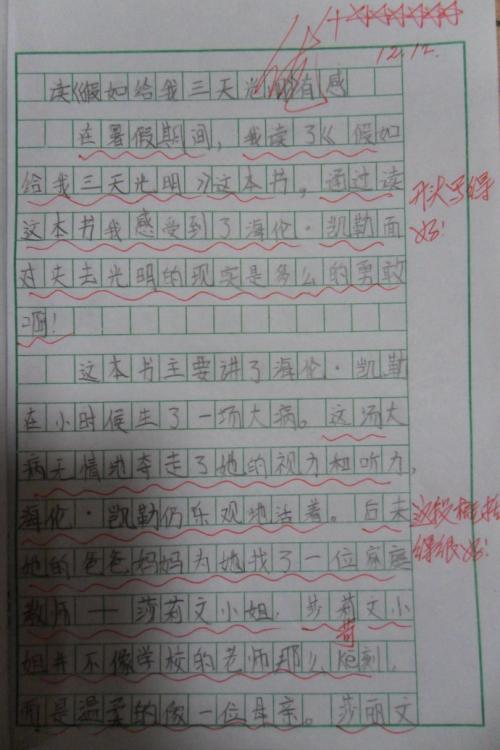 读《假如给我三天光明》有感
在暑假期间，我读了《假如
给我三天光明》这本书，通过读
这本书我感受到了海伦·凯勒面
对失去光明的现实是多么的勇敢
啊！
开头写得
好！
这本书主要讲了海伦·凯斯
在小时候生了一场大病。这场大
病无情地夺走了她的视力和听力，
海伦·凯勒仍乐观地活着。后来
她的爸爸妈妈为她找了一位家庭
教师——莎莉文小姐，莎莉文小
姐并不像学校的老师那么刻，
苛
而是温柔的像一位母亲。莎丽文
这段概括
得很好！
12.12.